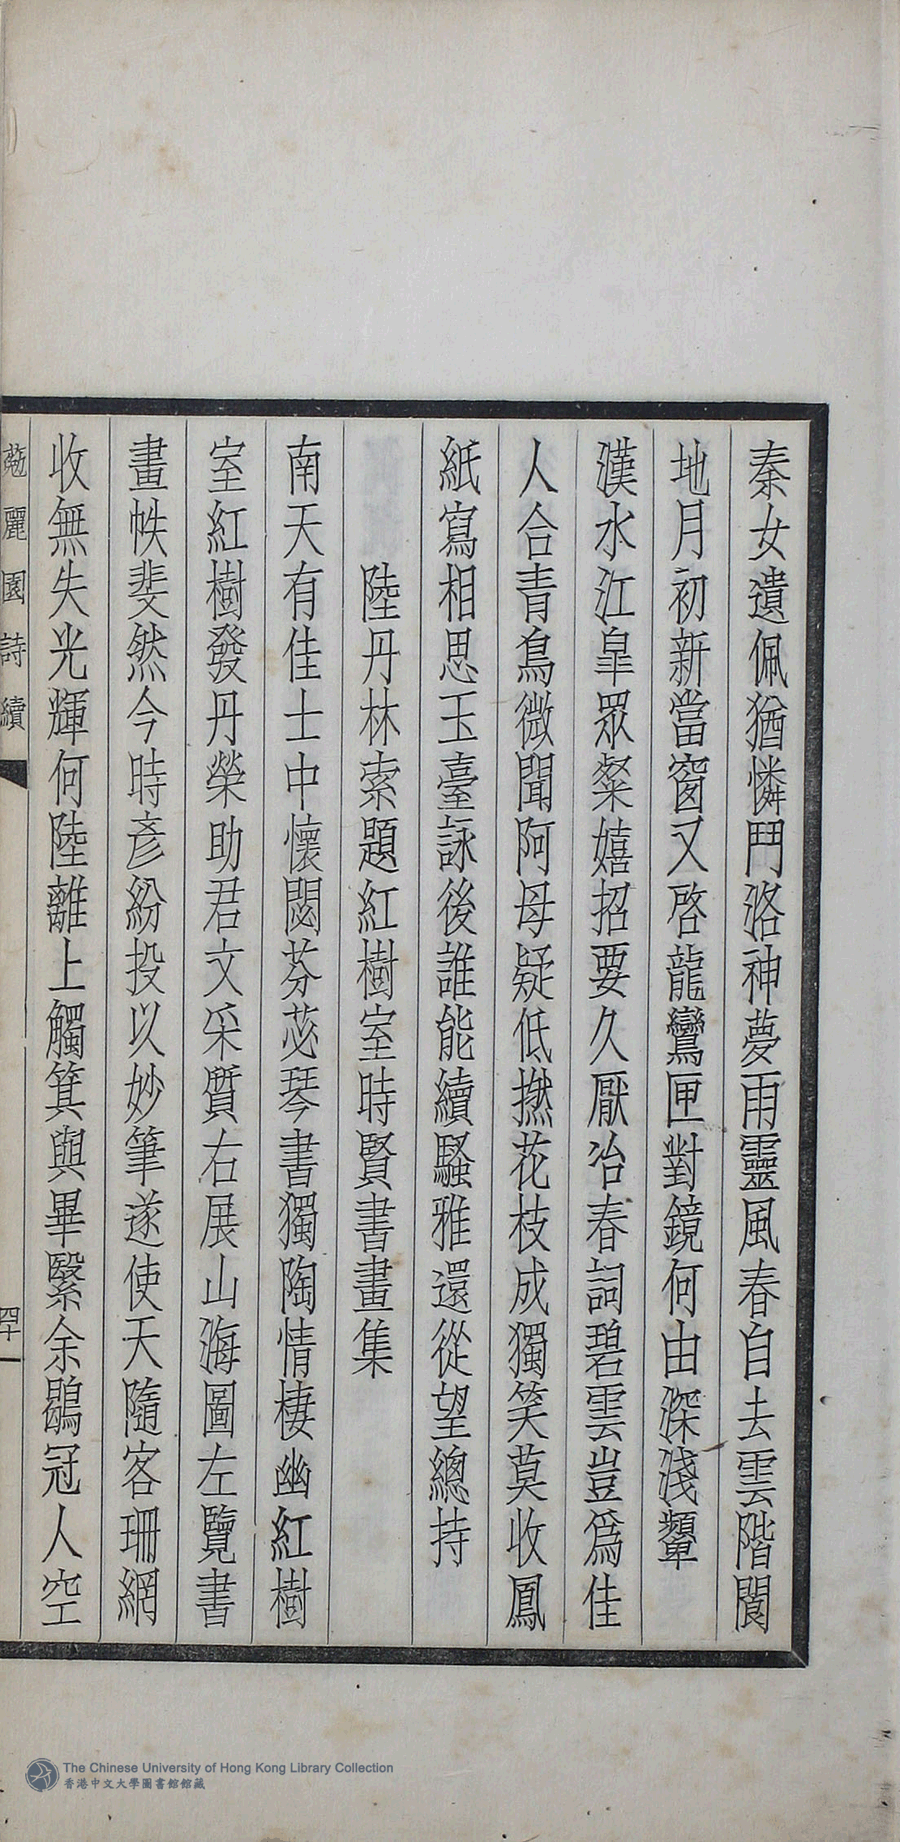 秦女遺佩猶憐鬥洛神夢雨靈風春自去雲階閬
地月初新當窗又啓龍鸞匣對鏡何由深淺顰
漢水江皐眾粲嬉招要久厭冶春詞碧雲豈爲佳
人合青鳥微聞阿母疑低撚花枝成獨笑莫收鳳
紙寫相思玉臺詠後誰能續騷雅還從望總持
陸丹林索題紅樹室時賢書畫集
南天有佳士中懷閟芬苾琴書獨陶情棲幽紅樹
室紅樹發丹榮助君文采質右展山海圖左覽書
畫帙斐然今時彥紛投以妙筆遂使天隨客珊網
收無失光輝何陸離上觸箕與畢繄余鶡冠人空
麗園詩續
四十
The Chinese University of Hong Kong Library Collection
香港中文大學圖書館館藏